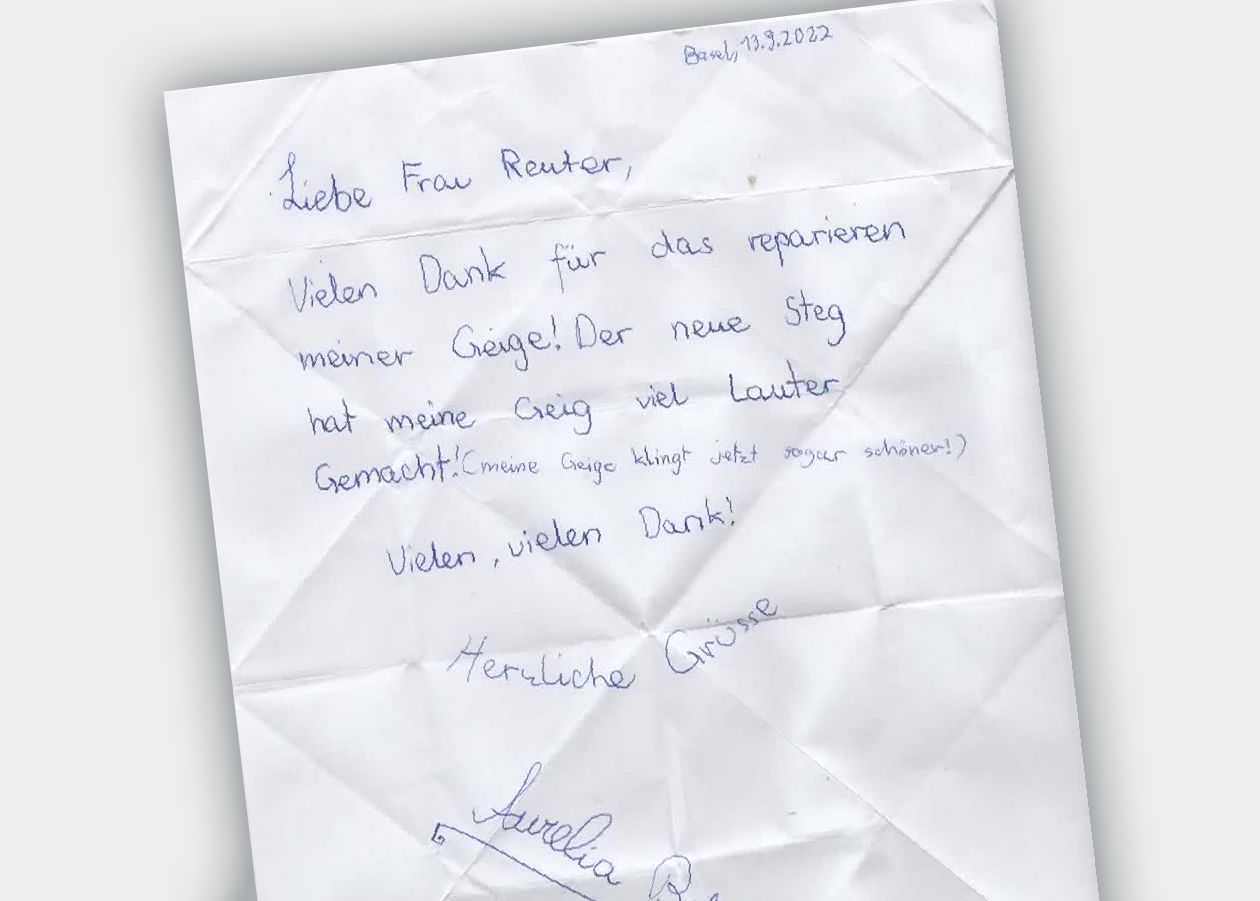 Basel, 13.9.2022
Liebe Frau Reuter,
Vielen Dank für das reparieren
meiner Geige! Der neue Steg
hat meine Geig viel Lauter
Gemacht! (meine Geige klingt jetzt sogar schöner!)
Vielen, vielen Dank!
Herzliche Grüsse
Aurelia